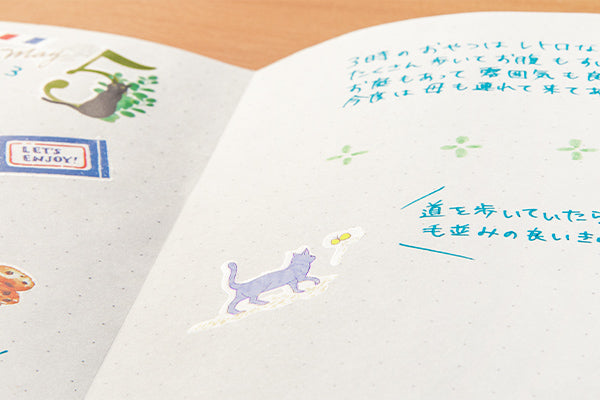 May
5
3
LET'S
ENJOY!
3時のおやつは レトロな
たくさん歩いてお腹もす
お庭もあって 雰囲気も良
今度は母も連れて来てあ
道を歩いていたら
毛並みの良いき